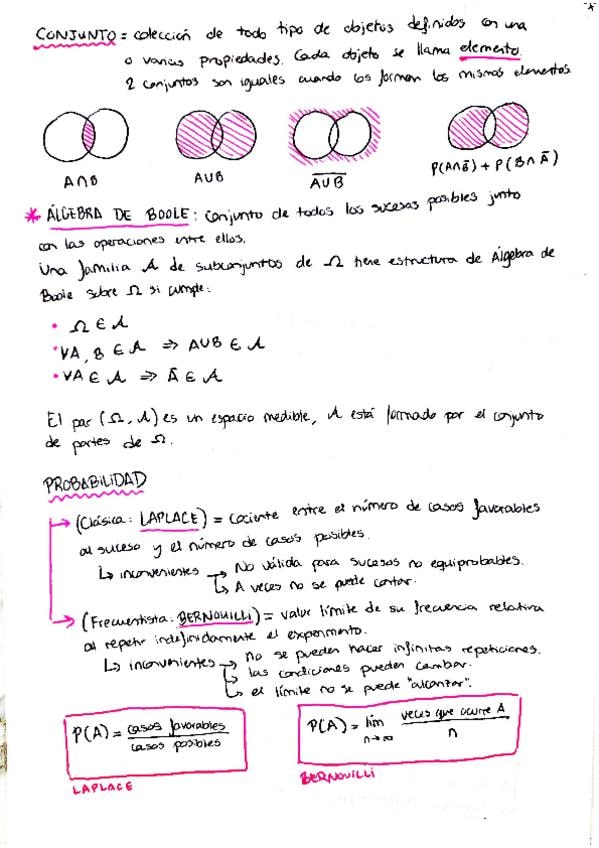 CONJUNTO = colección de todo tipo de objetos definidos con una
o varias propiedades. Cada objeto se llama elemento.
2 conjuntos son iguales cuando los forman los mismos elementos
A∩B
A∪B
\overline{A∪B}
P(A∩B̄) + P(B∩Ā)
* ÁLGEBRA DE BOOLE: Conjunto de todos los sucesos posibles junto
con las operaciones entre ellos.
Una familia A de subconjuntos de Ω tiene estructura de Álgebra de
Boole sobre Ω si cumple:
• Ω ∈ A
• ∀A, B ∈ A ⇒ A∪B ∈ A
• ∀A ∈ A ⇒ Ā ∈ A
El par (Ω, A) es un espacio medible, A está formado por el conjunto
de partes de Ω.
PROBABILIDAD
→ (Clásica: LAPLACE) = cociente entre el número de casos favorables
al suceso y el número de casos posibles.
↳ inconvenientes → No válida para sucesos no equiprobables.
↳ A veces no se puede contar.
→ (Frecuentista: BERNOUILLI) = valor límite de su frecuencia relativa
al repetir indefinidamente el experimento.
↳ inconvenientes → no se pueden hacer infinitas repeticiones.
↳ las condiciones pueden cambiar.
↳ el límite no se puede "alcanzar".
P(A) = casos favorables / casos posibles
LAPLACE
P(A) = lím n→∞ veces que ocurre A / n
BERNOUILLI